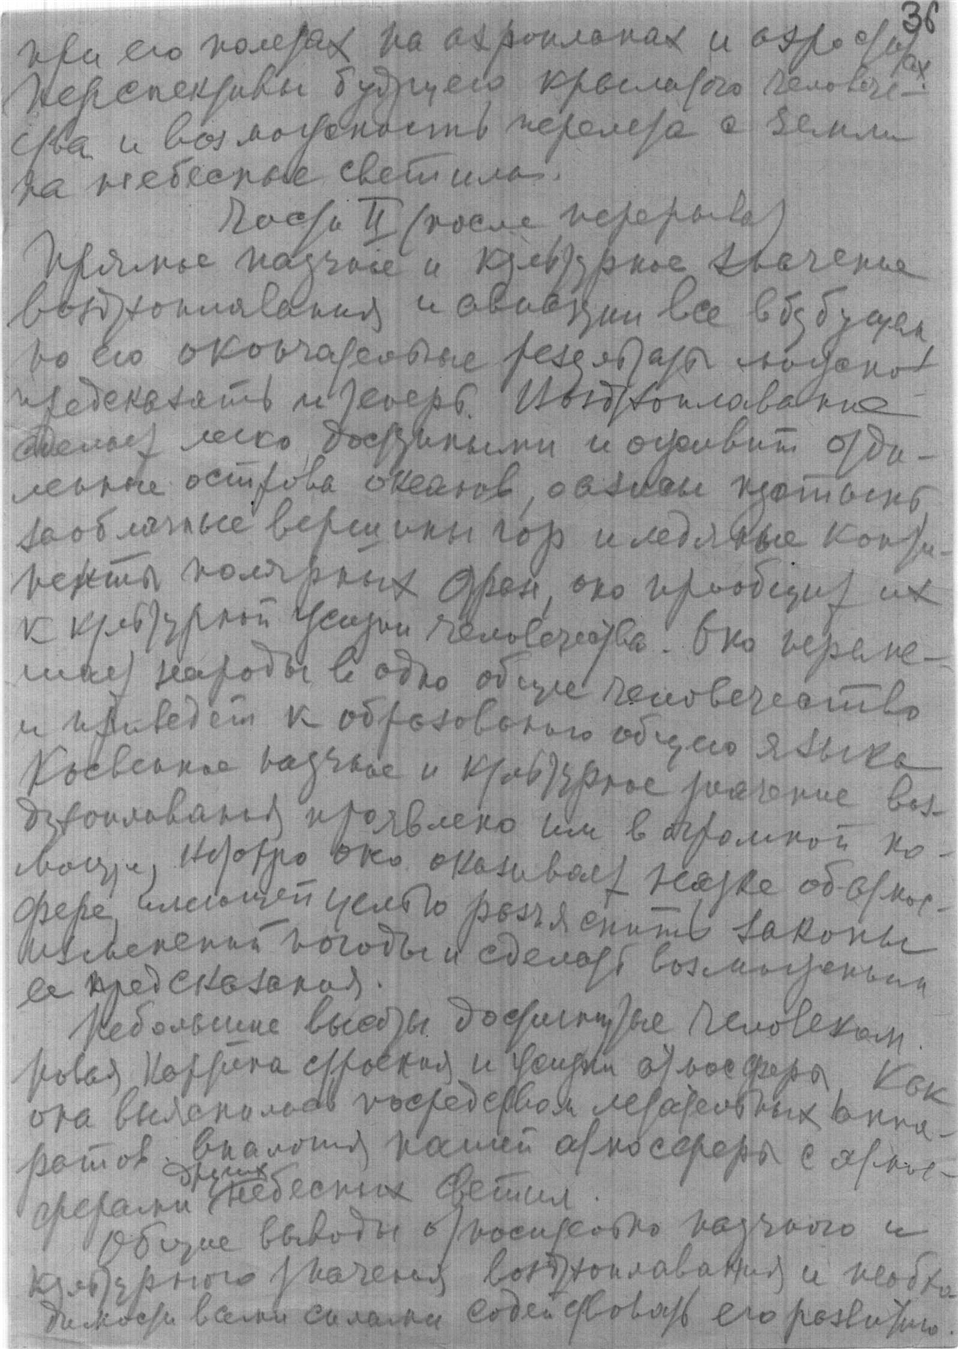 36
при его полетах на аэропланах и аэростатах.
Перспективы будущего крылатого человече-
ства и возможность перелета с Земли
на небесные светила.
Часть II (после перерыва)
Прямое научное и культурное значение
воздухоплавания и авиации все в будущем,
но его окончательные результаты можно
предсказать и теперь. Воздухоплавание
сделает легко доступными и оживит отда-
ленные острова океанов, оазисы пустынь,
заоблачные вершины гор и ледяные конти-
ненты полярных стран, оно приобщит их
к культурной жизни человечества. Оно переме-
шает народы в одно общее человечество
и приведет к образованию общего языка
Косвенное научное и культурное значение воз-
духоплавания проявлено им в огромной по-
мощи, которую оно оказывает науке об атмос-
фере, имеющей целью разъяснить законы
изменений погоды и сделать возможными
ее предсказания.
Небольшие высоты достигнутые человеком.
Новая картина строения и жизни атмосферы, как
она выяснилась посредством летательных аппа-
ратов. Аналогия нашей атмосферы с атмос-
ферами других небесных светил.
Общие выводы относительно научного и
культурного значения воздухоплавания и необхо-
димости всеми силами содействовать его развитию.